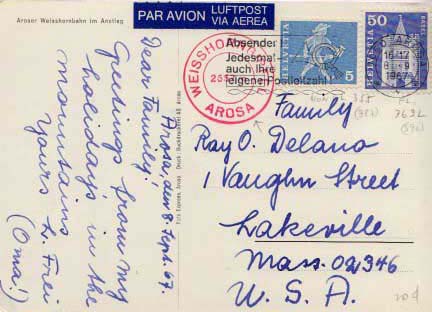 Aroser Weisshornbahn im Anstieg
PAR AVION LUFTPOST
VIA AEREA
WEISSHORNGIPFEL
AROSA
Absender
Jedesmal
auch Ihre
eigene Postleitzahl
HELVETIA
5
50
HELVETIA
1967
Arosa, den 8. Sept. 67.
Dear Family!
Greetings from my
holidays in the
mountains
Yours L. Frei
(Oma!)
Family
Ray O. Delano
1 Vaughn Street
Lakeville
Mass. 02346
U. S. A.
355
(382)
FL.
363L
20¢